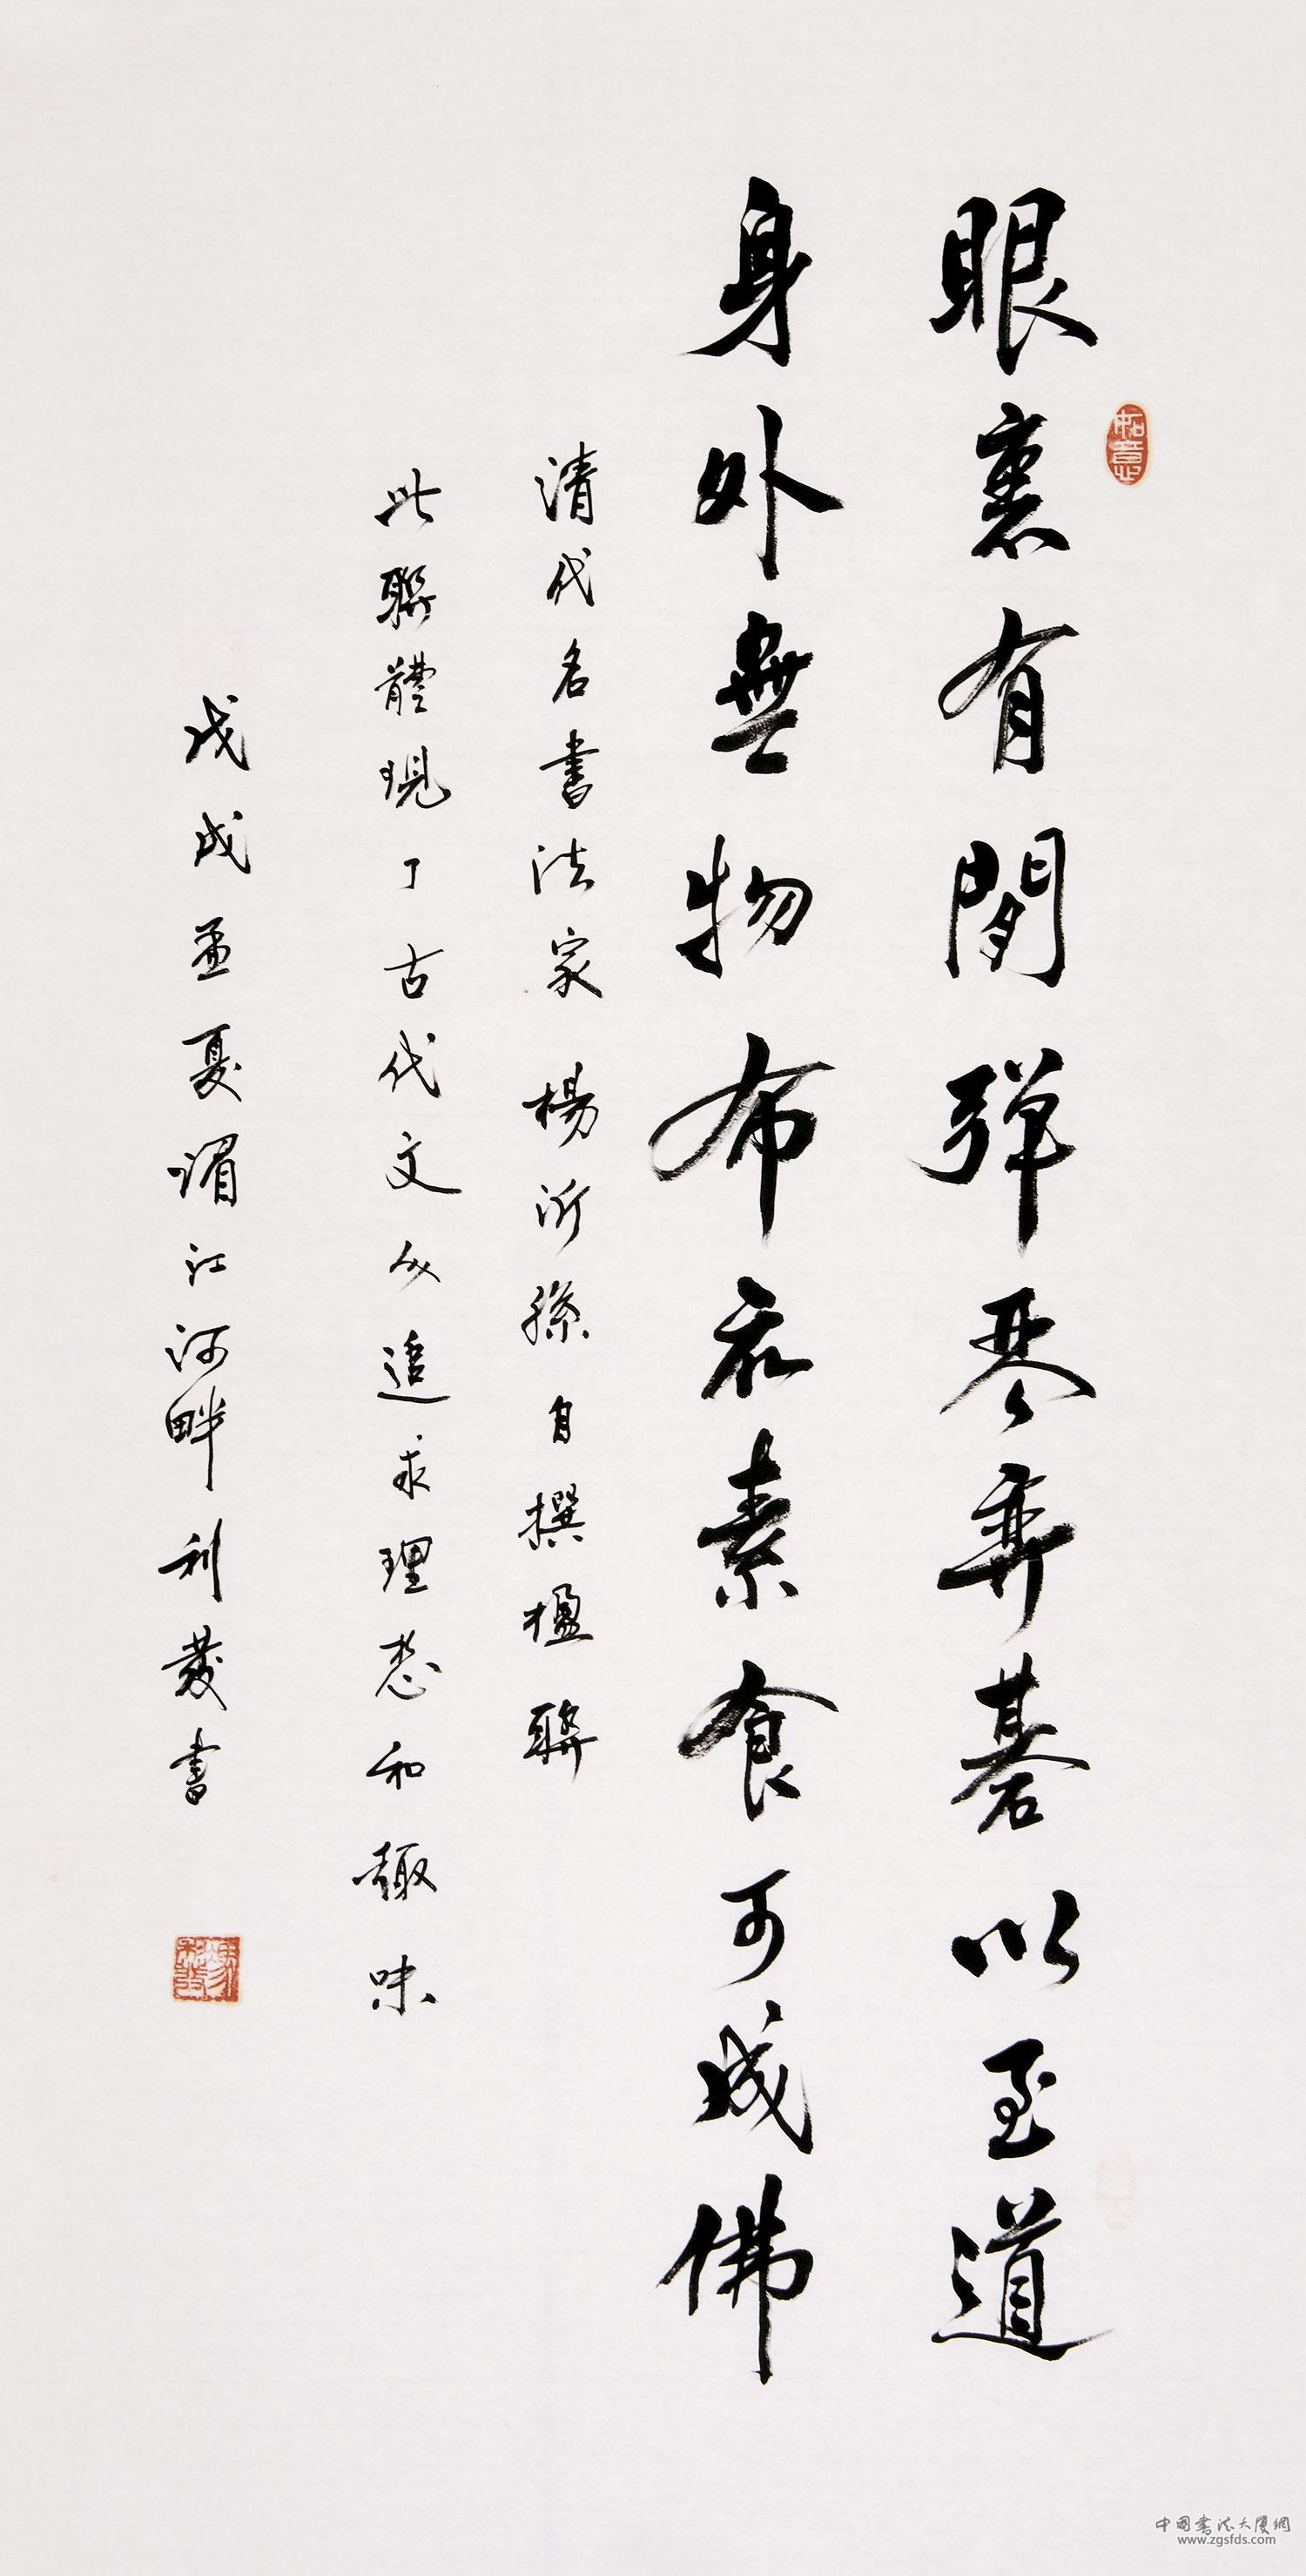 眼裏有閒弹琴弈碁以至道
身外無物布衣素食可成佛
清代名書法家楊沂孫自撰楹聯
此聯體現了古代文人追求理想和趣味
戊戌孟夏湄江河畔利發書
中国書法大厦網
www.zgsfds.com